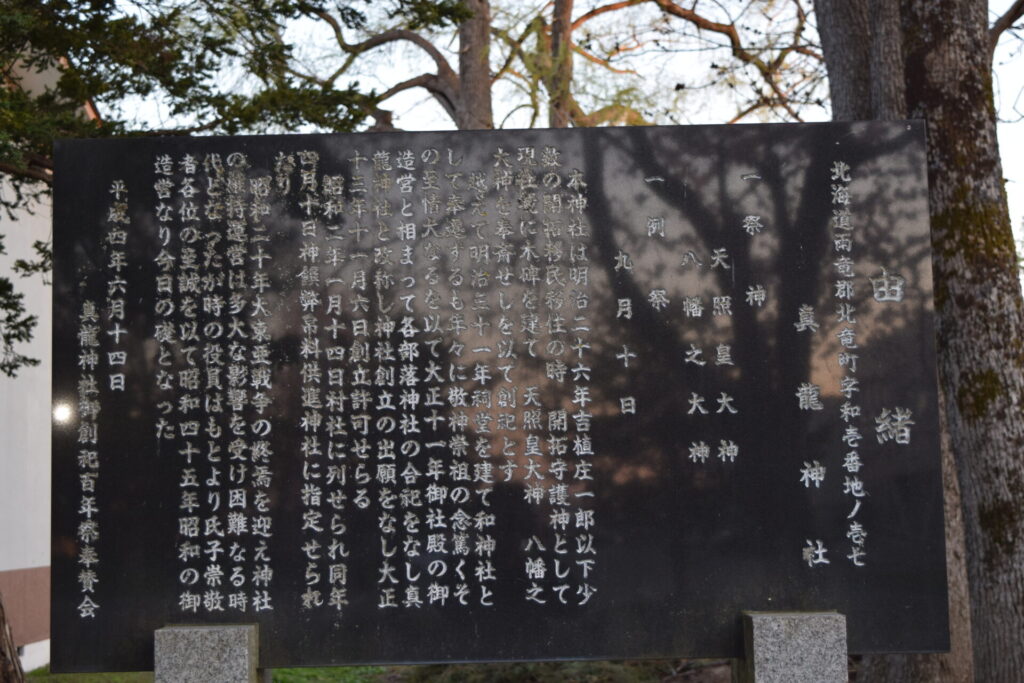 由緒
北海道雨竜郡北竜町字和壱番地ノ壱七
真龍神社
一祭神
天照皇大神
八幡之大神
一例祭
九月十日
本神社は明治二十六年吉植庄一郎以下少
数の開拓移民移住の時 開拓守護神として
現社域に木碑を建て 天照皇大神 八幡之
大神を奉斎せしを以て創祀とす
越えて明治三十一年祠堂を建て和神社と
して奉遷するも年々に敬神崇祖の念篤くそ
の至情大なるを以て大正十一年御社殿の御
造営と相まって各部落神社の合祀をなし真
龍神社と改称し神社創立の出願をなし大正
十三年十一月六日創立許可せらる
昭和二年一月十四日村社に列せられ同年
四月十日神饌幣帛料供進神社に指定せられ
たり
昭和二十年大東亜戦争の終焉を迎え神社
の維持運営は多大な影響を受け困難なる時
代となったが時の役員はもとより氏子崇敬
者各位の至誠を以て昭和四十五年昭和の御
造営なり今日の礎となった
平成四年六月十四日
真龍神社御創祀百年祭奉賛会